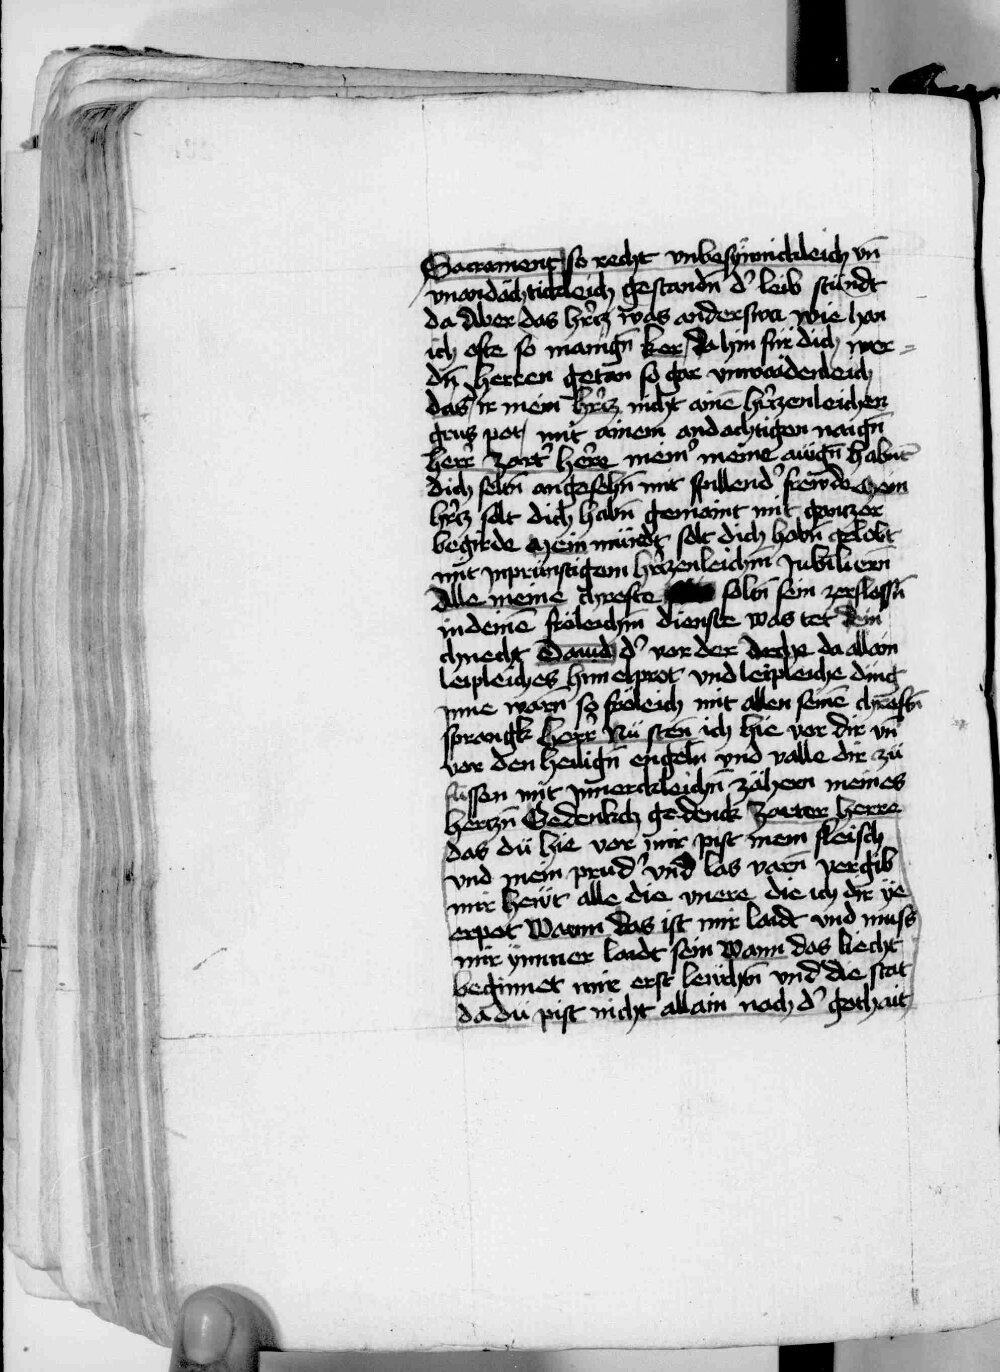 Sacrament so recht vnbesynnickleich vn̄
vnandächtickleich gestandn̄ d' leib stündt
da Aber das hr̄cz was anderswa wie han
ich ofte so manign̄ ker da hin für dich wer=
dn̄ herren getan so gar vnwirdenleich
das ir mein hr̄cz nicht ainē hr̄czenleichen
grus pot mit ainem andachtigen naign̄
herr̄ zart' herre mein' meine augn̄ habnt
dich soltn̄ angesehn̄ mit spillend' frewde Mein
hr̄cz solt dich habn̄ gemaint mit gantzer
begirde Mein mündt solt dich habn̄ gelobt
mit inprünstigem hr̄czenleichm̄ Jubiliern̄
Alle meine chrefte soltn̄ sein zerflossn̄
in deinē fröleichm̄ dienste was tet dein
chnecht Dauid d' vor der Arche da allain
leipleiches himelprot vnd leipleiche ding
inne warn so fröleich mit allen seinē chreftn̄
sprangk herr̄ Nü sten ich hie vor dir vn̄
vor den heilign̄ engeln̄ vnd valle dir zü
füssen mit innerckleichn̄ zähern meines
hertzn̄ Gedenkch gedenck zarter herre
das dü hie vor mir pist mein fleisch
vnd mein prud' vnd las varn̄ vergib
mir hewt alle die vnere die ich dir ye
erpot Wann das ist mir laidt vnd muss
mir ymmer laidt sein Wann das liecht
beginnet mir erst leuchtn̄ vnd die stat
da dü pist nicht allain nach d' gothait